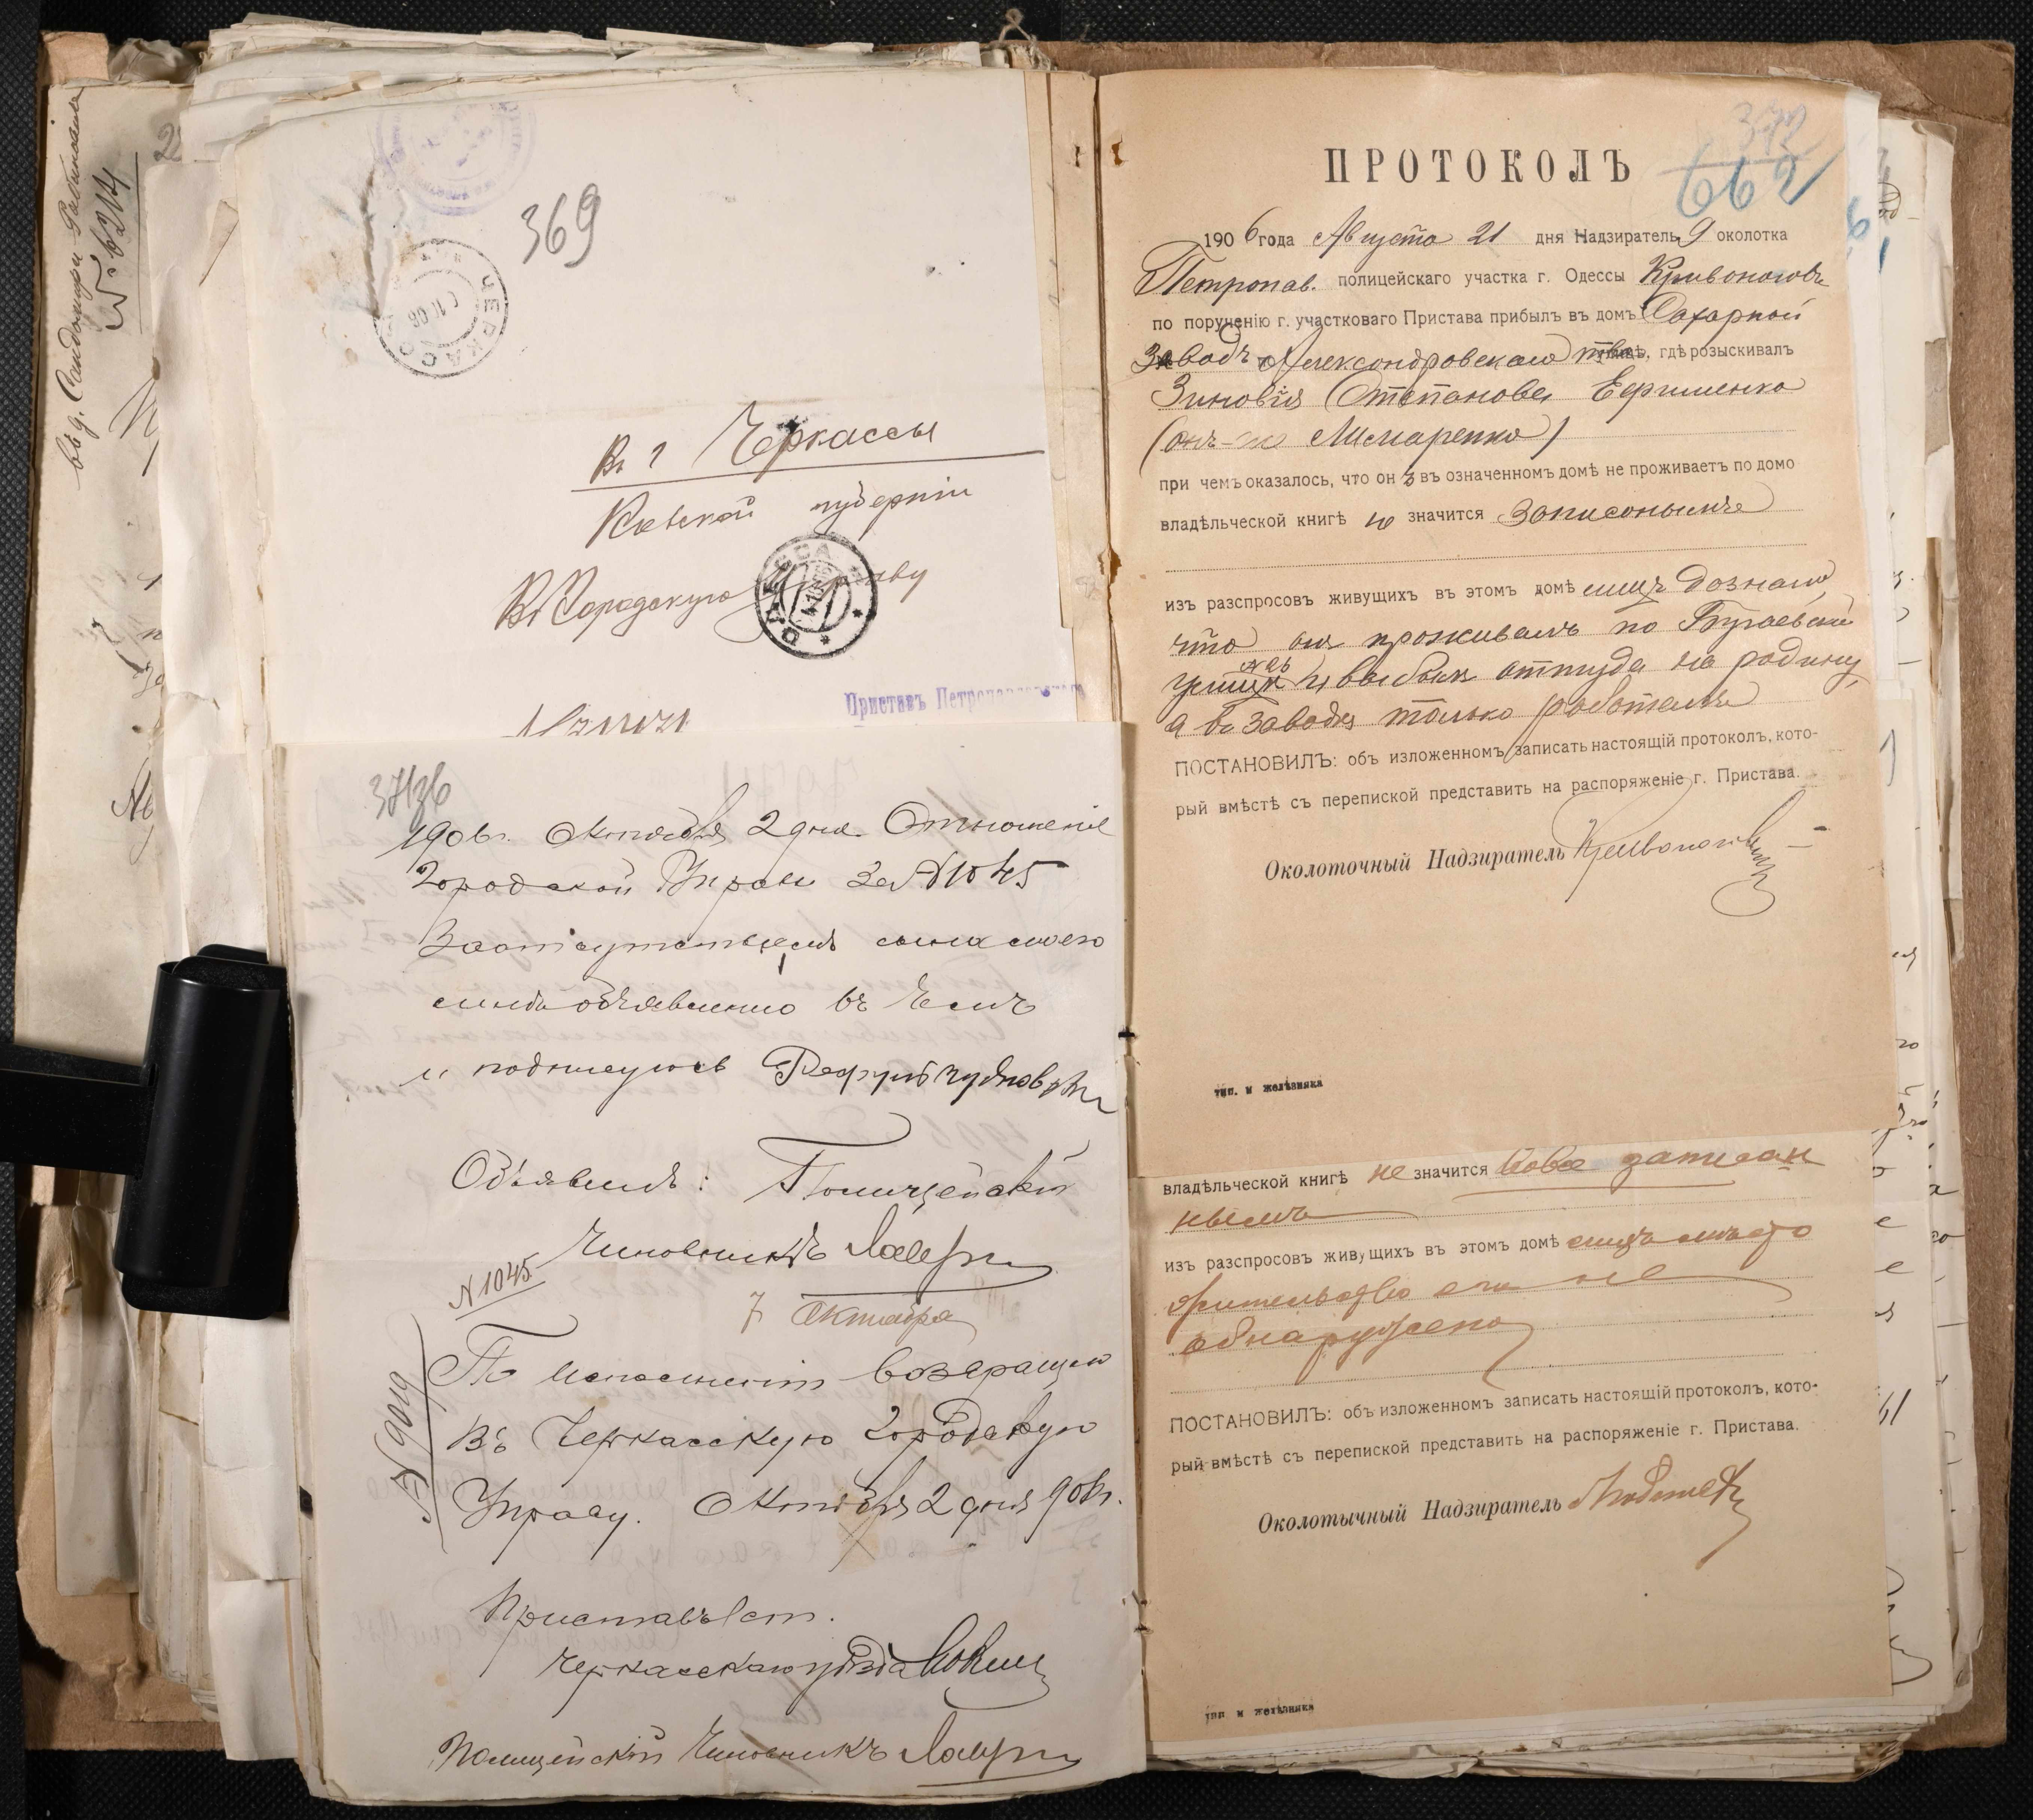 въ д. Сандомири-Рабиновича
№ 6214
369
ЧЕРКАССЫ
Въ г Черкассы
Кіевской губерніи
Въ Городскую Управу
ОДЕССА
Приставъ Петропавловскаго
1906 г. Октября 2 дня. Отношеніе
Городской Управы за № 1045
За отсутствіемъ сына моего
мнѣ объявлено въ чемъ
и подписуюсь
Объявилъ: Полицейскій
Чиновникъ
N 1045
7 Октября
№ 9019
По исполненіи возвращаю
Въ Черкасскую Городскую
Управу. Октября 2 дня 906 г.
Приставъ 1 ст.
Черкасскаго уѣзда
Полицейскій Чиновникъ
372
662
ПРОТОКОЛЪ
1906 года Августа 21 дня Надзиратель 9 околотка
Петропав. полицейскаго участка г. Одессы Кривоноговъ
по порученію г. участковаго Пристава прибылъ въ домъ Сахарной
Заводъ Александровскаго тва, гдѣ розыскивалъ
Зиновія Степанова Ефименко
(онъ-же Лисаренко)
при чемъ оказалось, что онъ въ означенномъ домѣ не проживаетъ по домо
владѣльческой книгѣ не значится записонымъ
изъ разспросовъ живущихъ въ этомъ домѣ лицъ дознано,
что онъ проживалъ по Бугаевской
улицѣ и выбылъ оттуда на родину,
а въ заводѣ только работалъ
ПОСТАНОВИЛЪ: объ изложенномъ записать настоящій протоколъ, кото-
рый вмѣстѣ съ перепиской представить на распоряженіе г. Пристава.
Околоточный Надзиратель Кривоноговъ
тип. м желѣзняка
владѣльческой книгѣ не значится вовсе записан
нымъ
изъ разспросовъ живущихъ въ этомъ домѣ лицъ мѣсто
жительство его не
обнаружено
ПОСТАНОВИЛЪ: объ изложенномъ записать настоящій протоколъ, кото-
рый вмѣстѣ съ перепиской представить на распоряженіе г. Пристава.
Околотычный Надзиратель
тип м желѣзняка